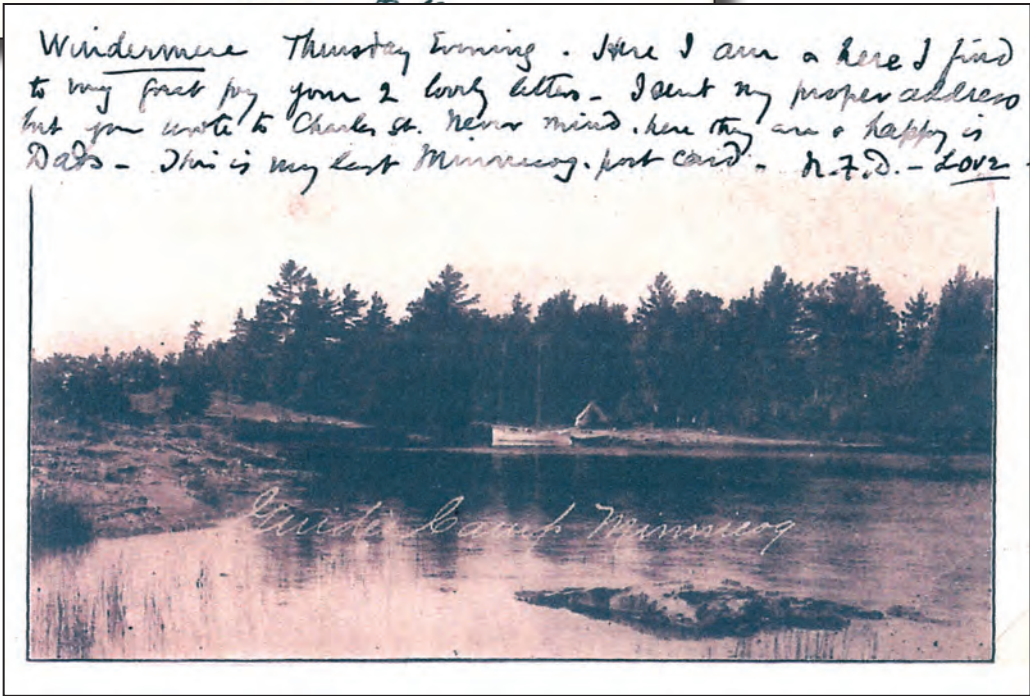 Windermere Thursday Evening. Here I am & here I find
to my great joy your 2 lovely letters - I sent my proper address
but you wrote to Charles St. Never mind. here they are & happy is
Dads - This is my last Minnicog. post card - N.F.D. - Love
Guide Camp Minnicog